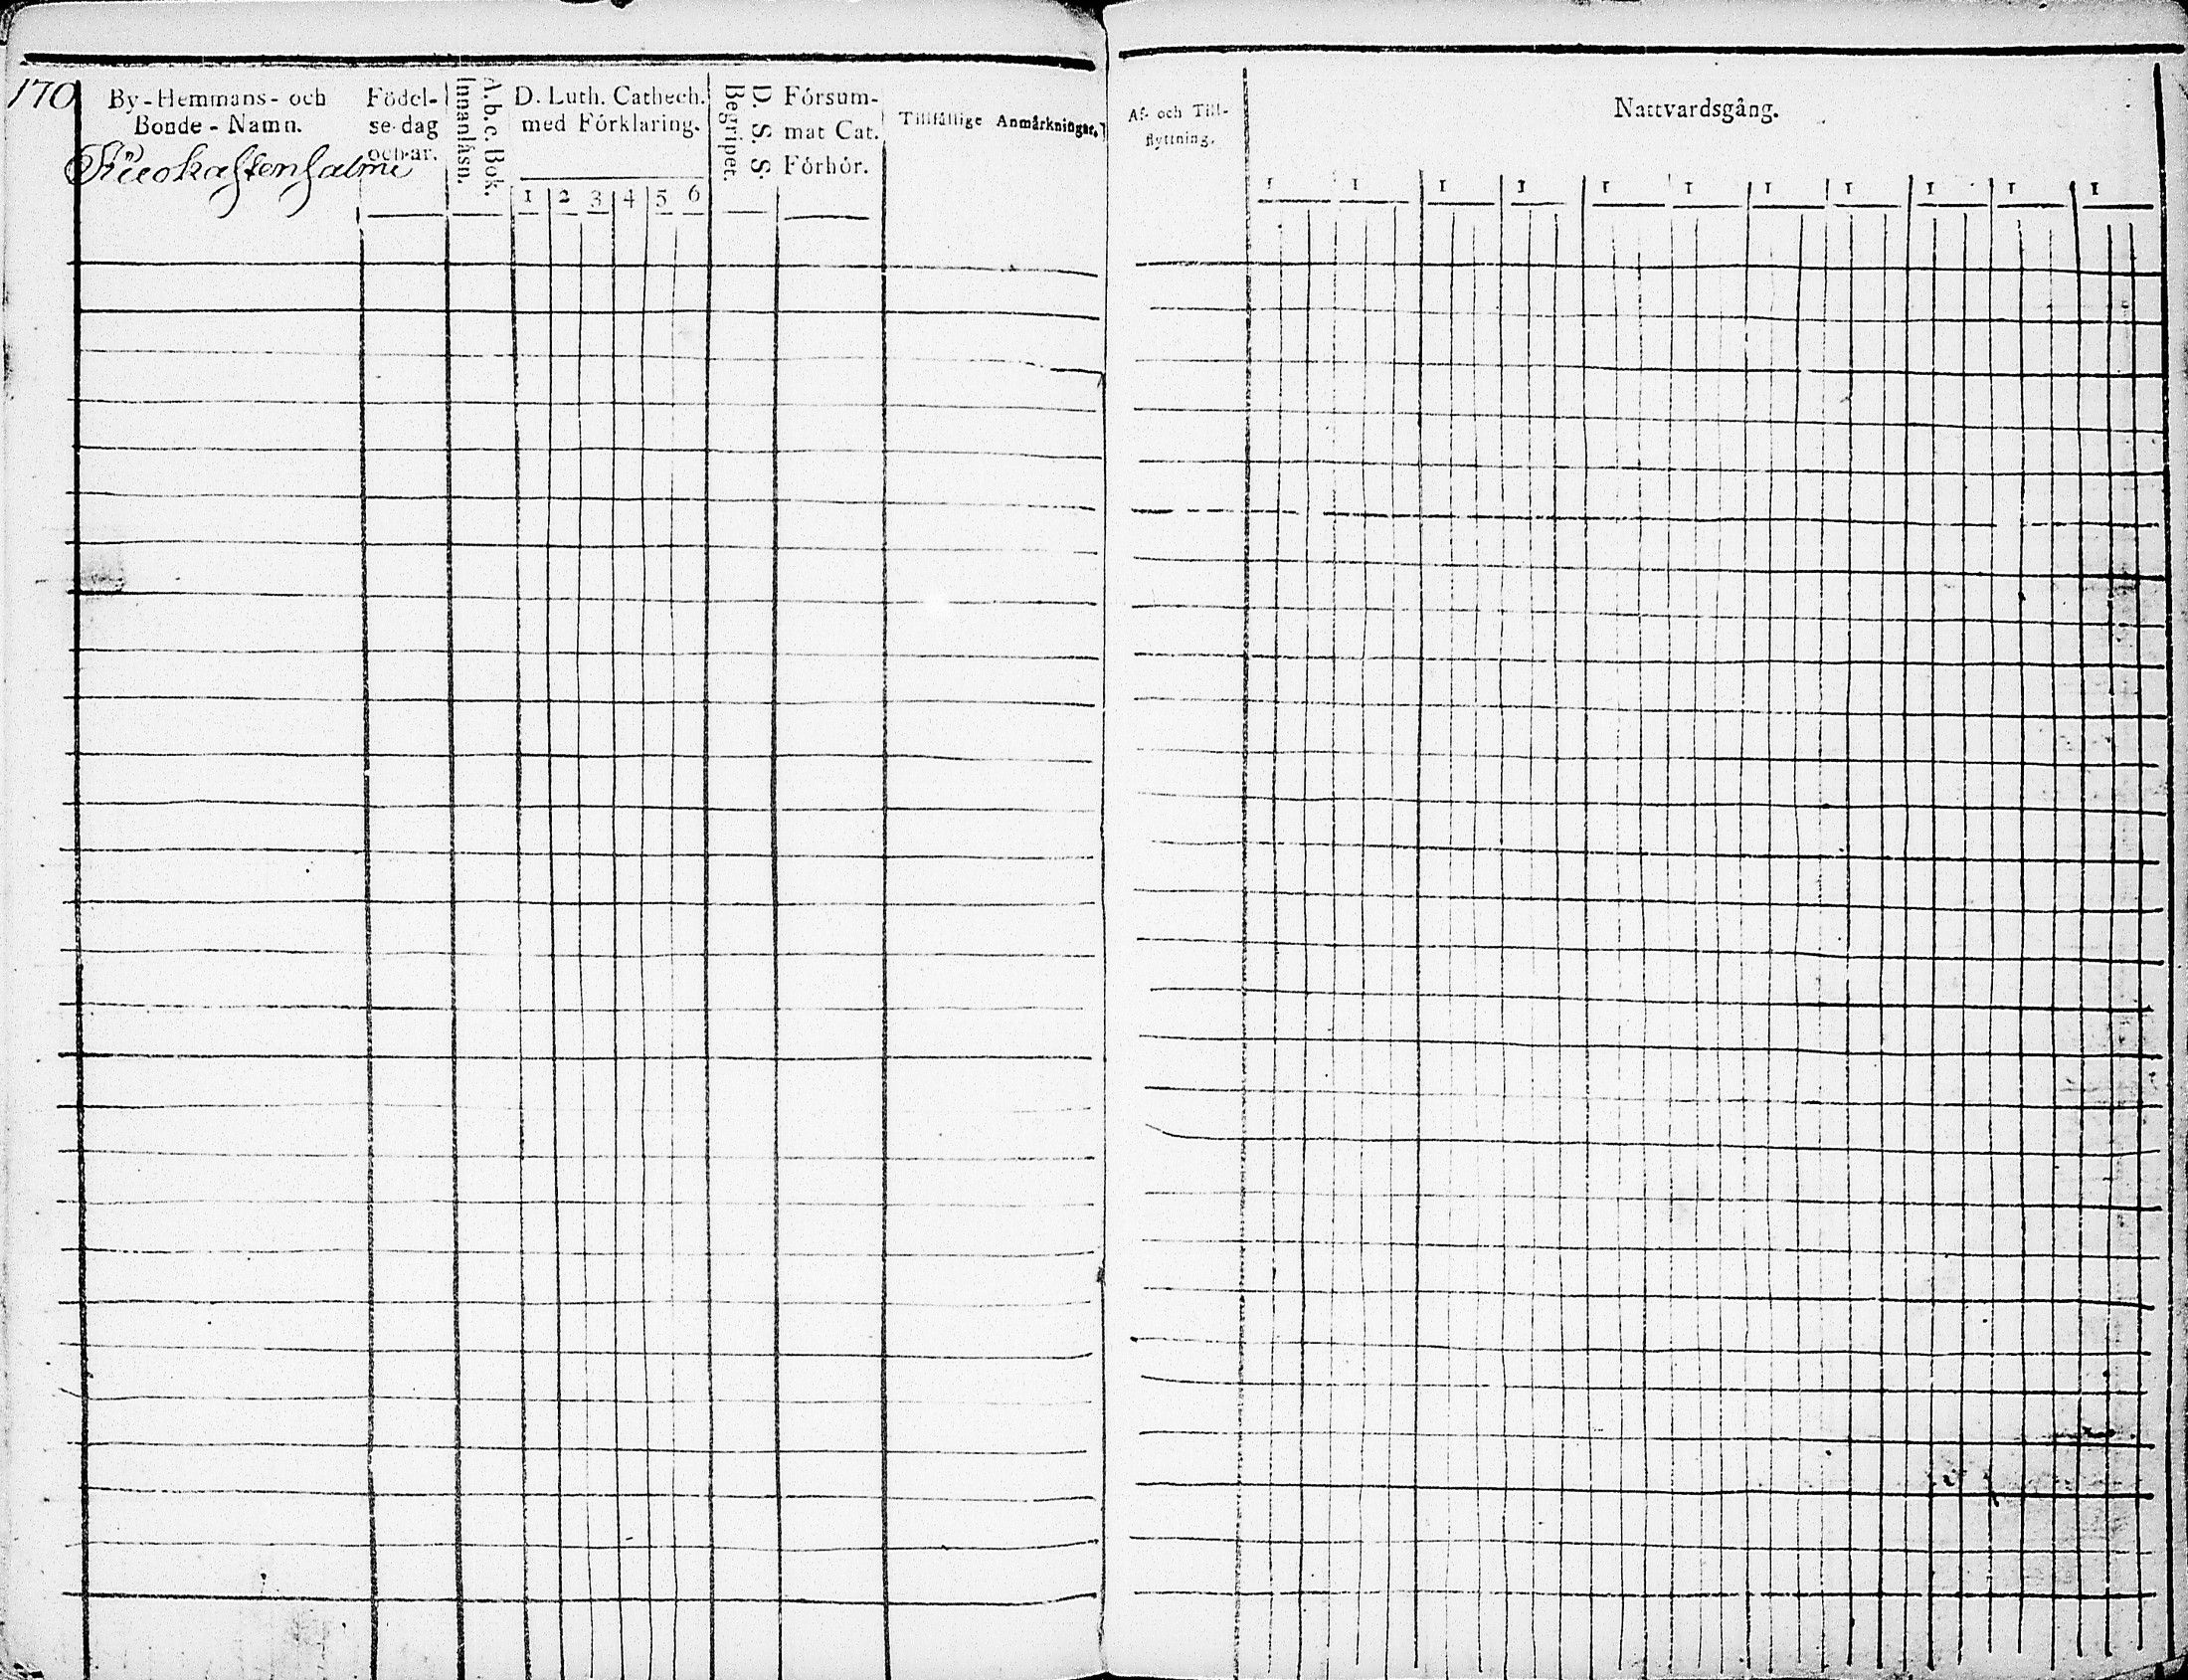 170
By-Hemmans- och
Bonde-Namn.
Födel-
se-dag
och år.
A. b. c. Bok.
Innanläsn.
D. Luth. Cathech.
med Förklaring.
1 2 3 4 5 6
D. S. S. S.
Begripet.
Försum-
mat Cat.
Förhör.
Tillfällige Anmärkningar.
Ruokastensalmi
Af- och Till-
flyttning.
Nattvardsgång.
1 1 1 1 1 1 1 1 1 1 1